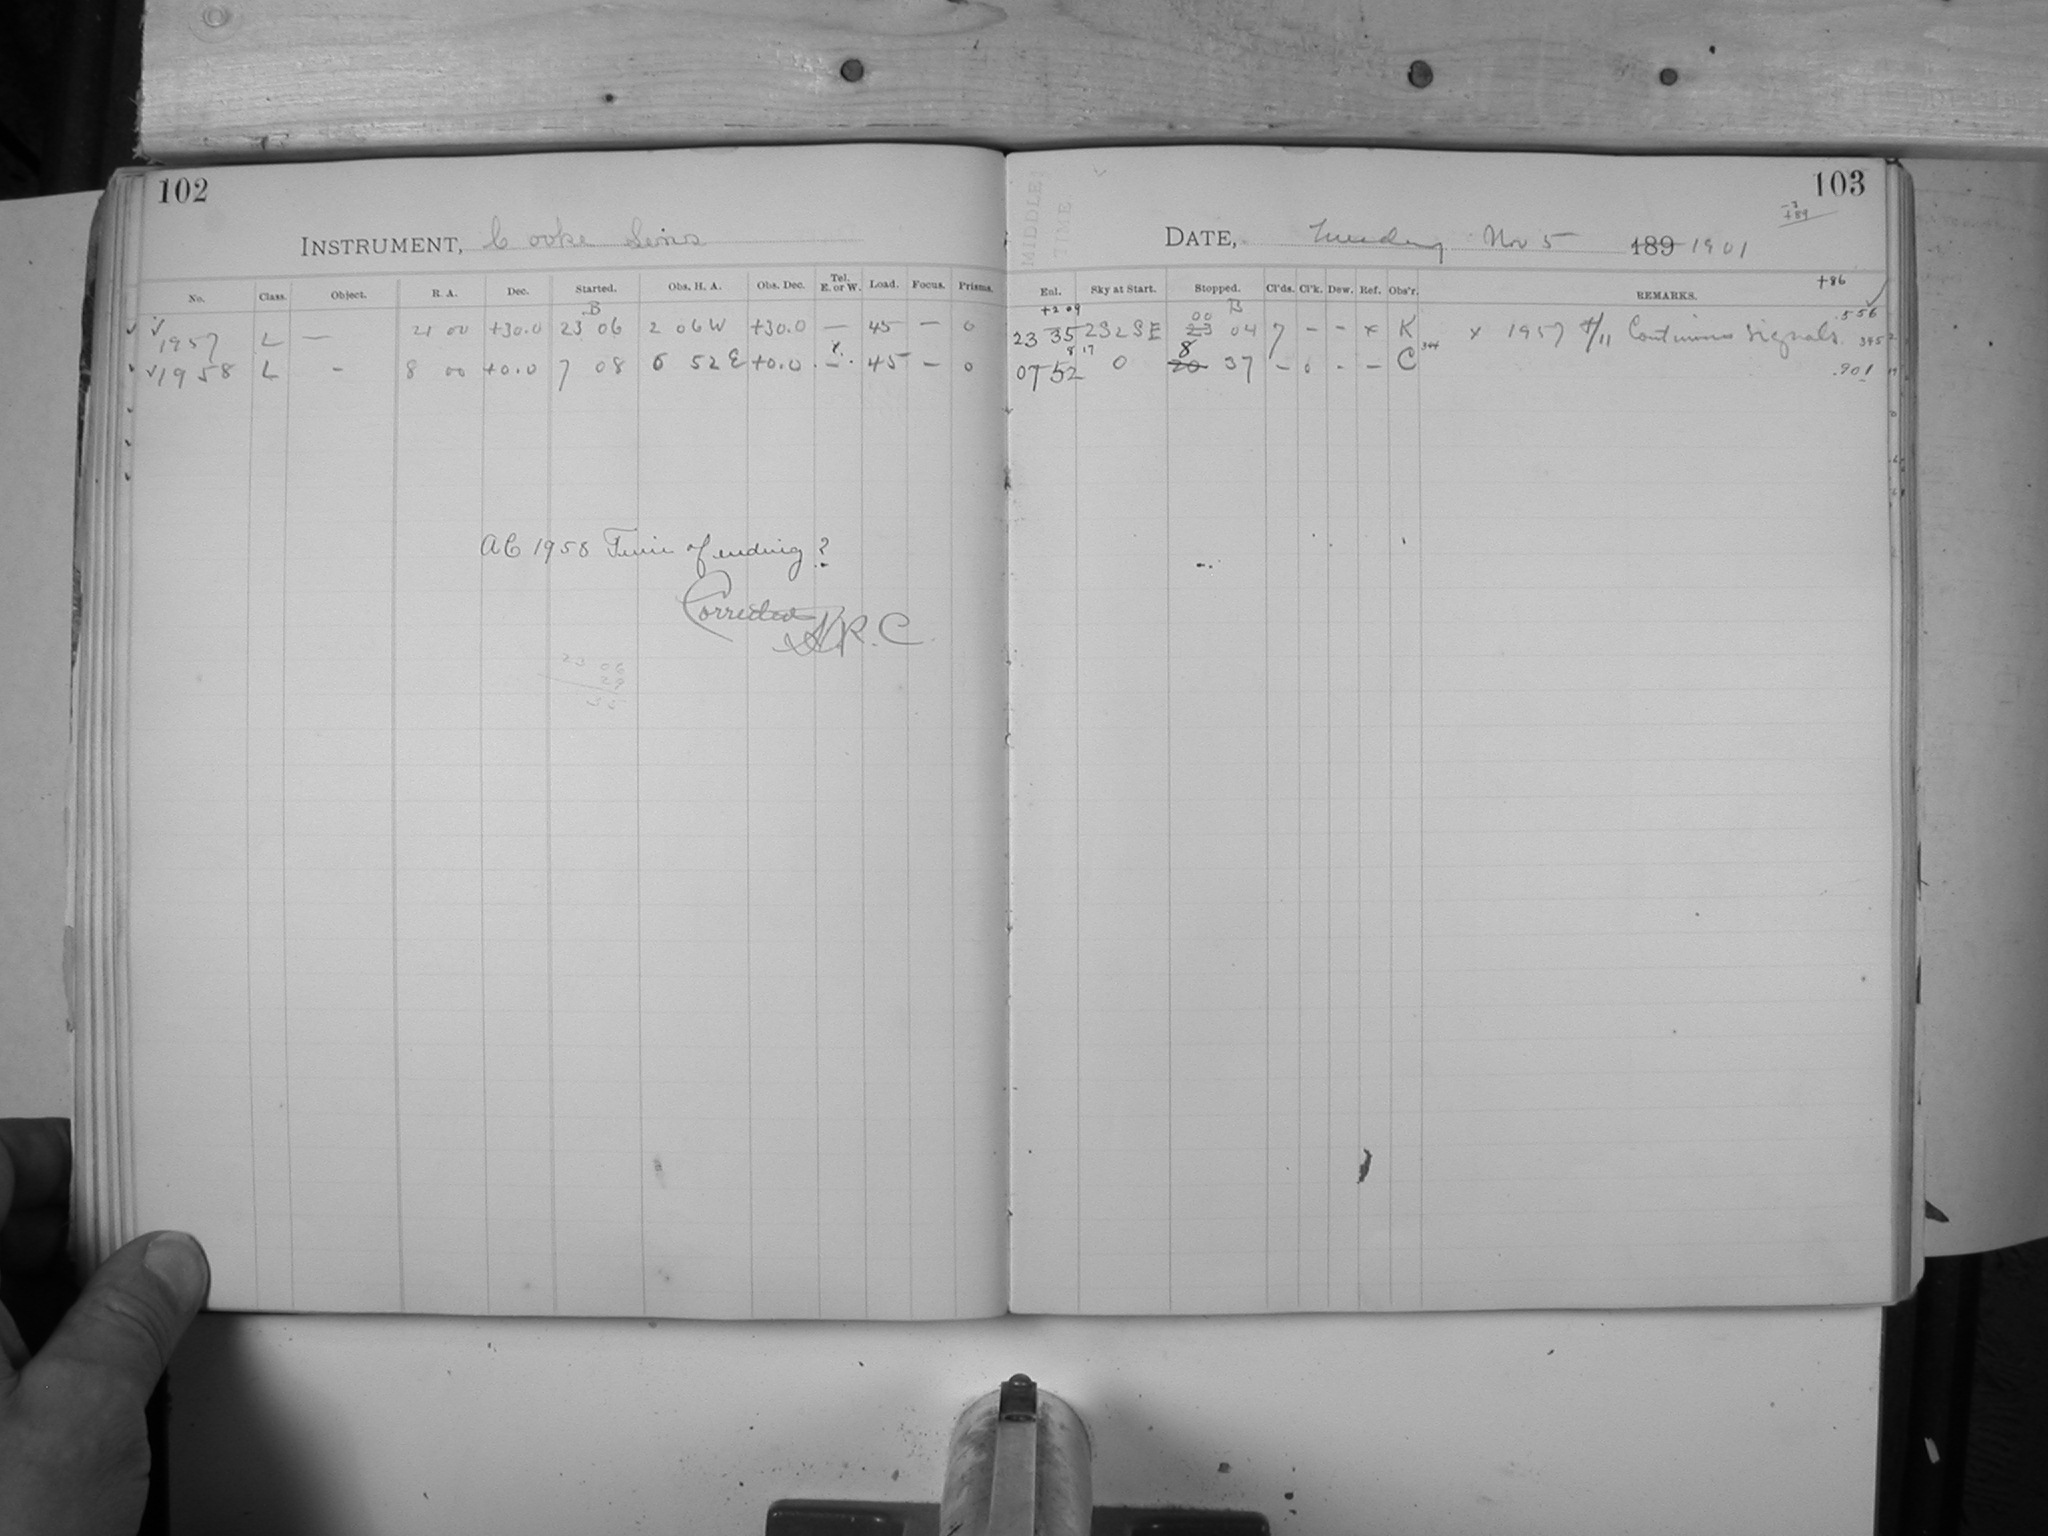 102
103
INSTRUMENT, Cooke Lens
DATE, Tuesday Nov 5 189 1901
-3
+89
MIDDLE
TIME
No. Class. Object. R. A. Dec. Started. Obs. H. A. Obs. Dec. Tel. E. or W. Load. Focus. Prisms.
Enl. Sky at Start. Stopped. Cl'ds. Cl'k. Dew. Ref. Obs'r. REMARKS. +86
B
+2 09
00 B
.556
1957 L — 21 00 +30.0 23 06 2 06 W +30.0 — 45 — 0
23 35 2 S 2 S E 23 04 7 - - x K x 1957 4/11 Continuous signals. 345
8 17
8
344
1958 L - 8 00 +0.0 7 08 0 52 E +0.0 - 45 — 0
07 52 0 20 37 - 0 - - C .901
AC 1958 Time of ending?
Corrected
R. C.
23 06